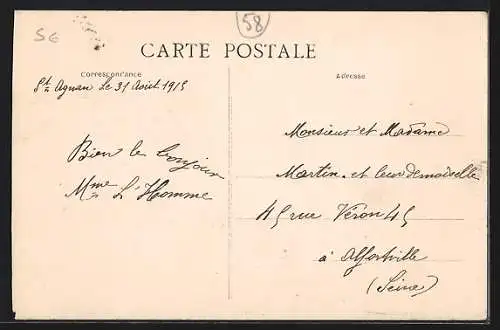 56
58
CARTE POSTALE
Correspondance
Adresse
St Agnan le 31 Août 1915
Bien le bonjour
Mme L'Homme
Monsieur et Madame
Martin et leur demoiselle
45 rue Véron 45
à Alfortville
(Seine)